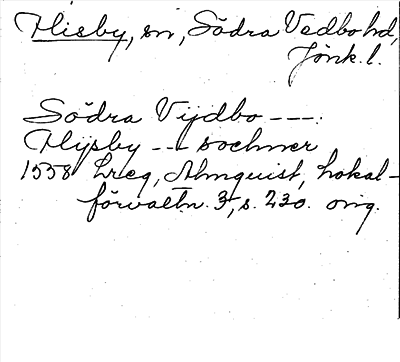 Flisby, sn, Södra Vedbo hd,
Jönk. l.
Södra Vijdbo ---:
Flijsby --- sochner
1558 Lreg, Almquist, Lokal-
förvaltn. 3, s. 230. orig.